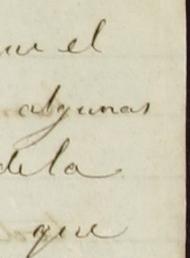 que el
algunas
dela
que